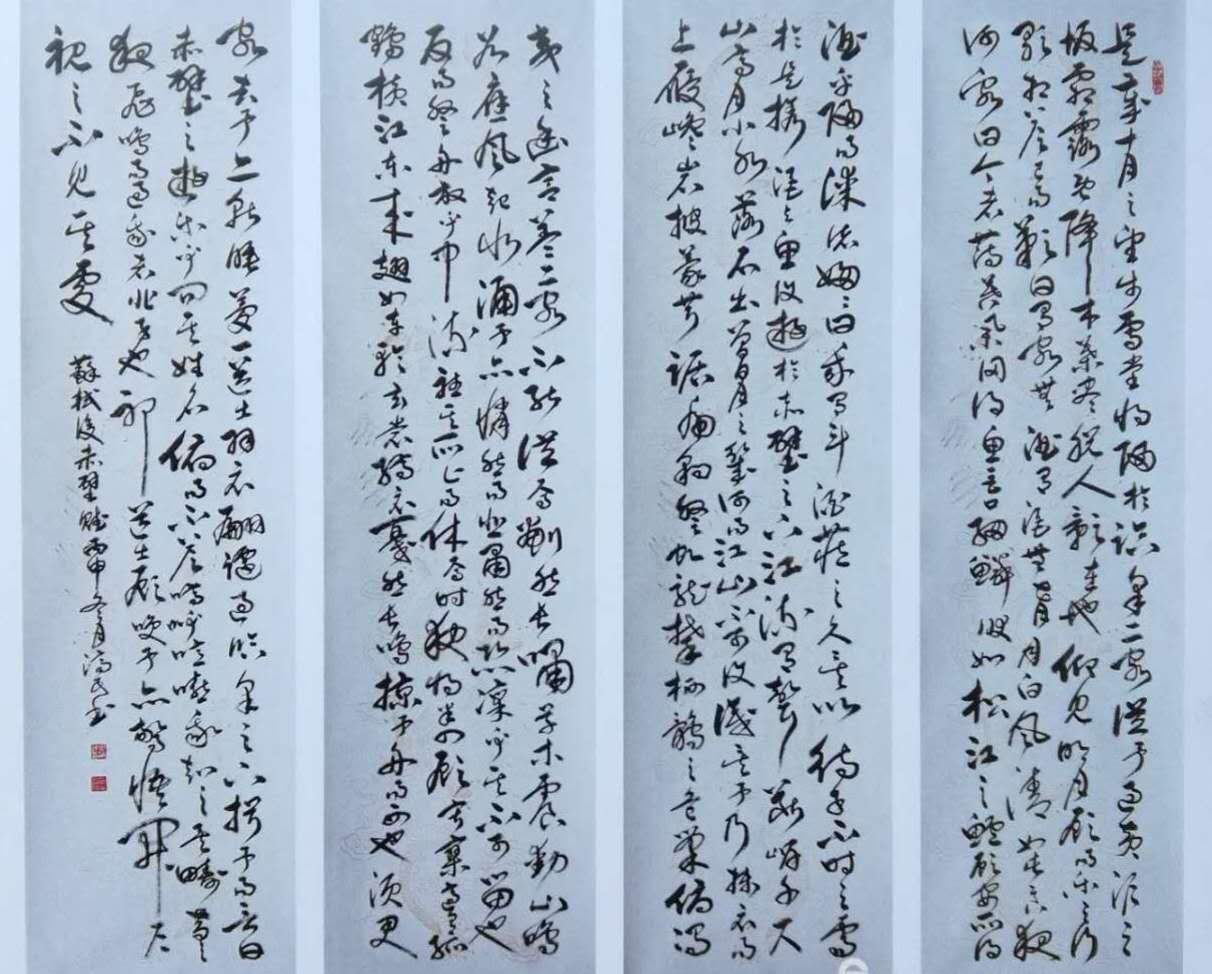 是歲十月之望步雪堂將歸於臨皋二客從予過黃泥之
坂霜露既降木葉盡脫人影在地仰見明月顧而樂之行
歌相答已而歎曰有客無酒有酒無肴月白風清如此良夜
何客曰今者薄暮舉網得魚巨口細鱗狀如松江之鱸顧安所得
酒乎歸而謀諸婦婦曰我有斗酒藏之久矣以待子不時之需
於是攜酒與魚復遊於赤壁之下江流有聲斷岸千尺
山高月小水落石出曾日月之幾何而江山不可復識矣予乃攝衣而
上履巉岩披蒙茸踞虎豹登虬龍攀棲鶻之危巢俯馮
夷之幽宮蓋二客不能從焉劃然長嘯草木震動山鳴
谷應風起水涌予亦悄然而悲肅然而恐凜乎其不可留也
反而登舟放乎中流聽其所止而休焉時夜將半四顧寂寥適有孤
鶴橫江東來翅如車輪玄裳縞衣戛然長鳴掠予舟而西也須臾
客去予亦就睡夢一道士羽衣翩躚過臨皋之下揖予而言曰
赤壁之遊樂乎問其姓名俯而不答嗚呼噫嘻我知之矣疇昔之
夜飛鳴而過我者非子也耶道士顧笑予亦驚悟開戶
視之不見其處
蘇軾後赤壁賦丙申冬月